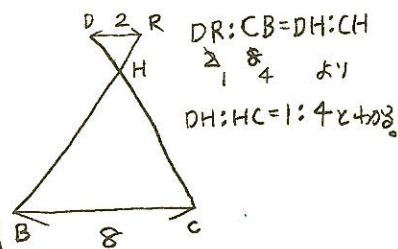 D 2 R
H
B 8 C
DR:CB=DH:CH
2 8
1 4 より
DH:HC=1:4と切る。